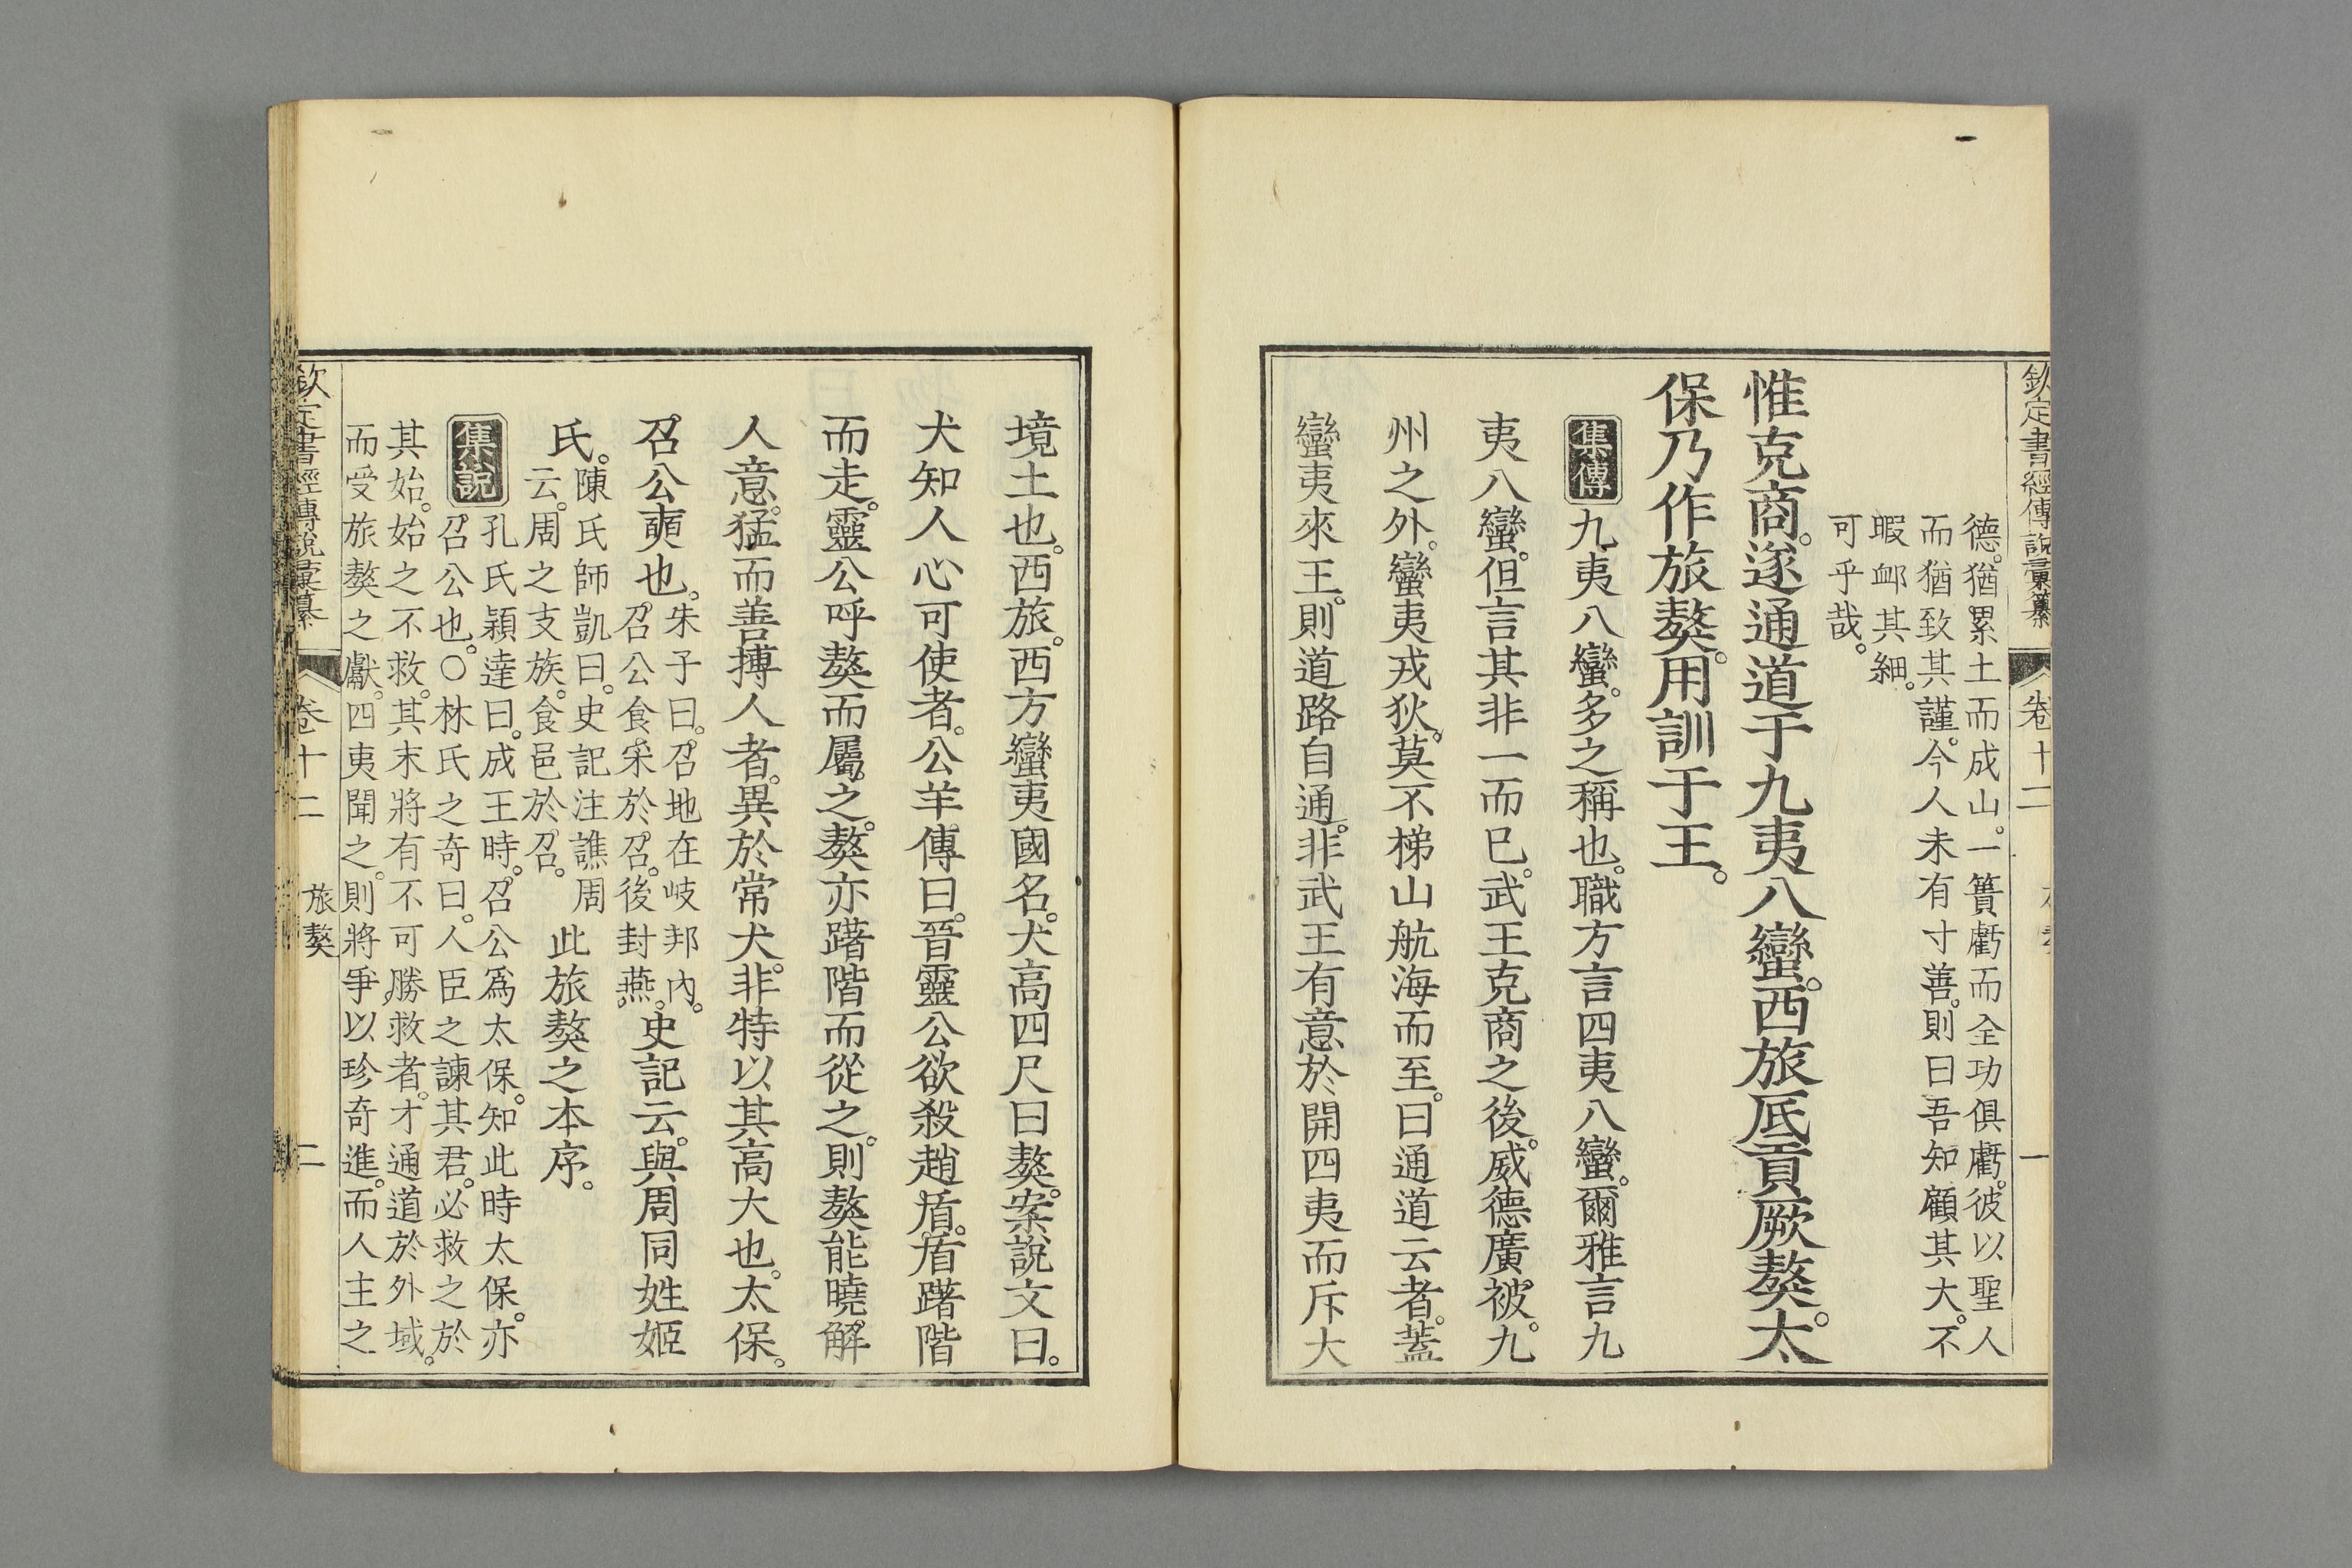 欽定書經傳說彙纂 卷十二 一
德。猶累土而成山。一簣虧而全功俱虧。彼以聖人
而猶致其謹。今人未有寸善。則曰吾知顧其大。不
暇卹其細。
可乎哉。
惟克商。遂通道于九夷八蠻。西旅厎貢厥獒。太
保乃作旅獒。用訓于王。
集傳 九夷八蠻。多之稱也。職方言四夷八蠻。爾雅言九
夷八蠻。但言其非一而已。武王克商之後。威德廣被。九
州之外。蠻夷戎狄。莫不梯山航海而至。曰通道云者。蓋
蠻夷來王。則道路自通。非武王有意於開四夷而斥大
境土也。西旅。西方蠻夷國名。犬高四尺曰獒。案說文曰。
犬知人心可使者。公羊傳曰。晉靈公欲殺趙盾。盾躇階
而走。靈公呼獒而屬之。獒亦躇階而從之。則獒能曉解
人意。猛而善搏人者。異於常犬。非特以其高大也。太保。
召公奭也。
朱子曰。召地在岐邦內。
召公食采於召。後封燕。
史記云。與周同姓姬
氏。
陳氏師凱曰。史記注譙周
云。周之支族。食邑於召。
此旅獒之本序。
集說
孔氏穎達曰。成王時。召公爲太保。知此時太保。亦
召公也。○林氏之奇曰。人臣之諫其君。必救之於
其始。始之不救。其末將有不可勝救者。才通道於外域。
而受旅獒之獻。四夷聞之。則將爭以珍奇進。而人主之
欽定書經傳說彙纂 卷十二 旅獒 二